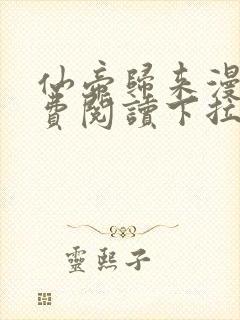 仙帝歸来漫
費閱讀下拉
靈熙子